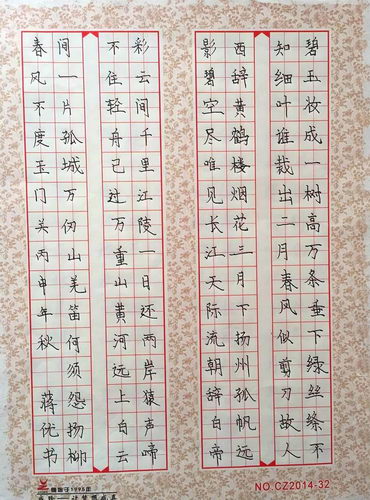 碧玉妆成一树高万条垂下绿丝绦不
知细叶谁裁出二月春风似剪刀故人
西辞黄鹤楼烟花三月下扬州孤帆远
影碧空尽唯见长江天际流朝辞白帝
彩云间千里江陵一日还两岸猿声啼
不住轻舟已过万重山黄河远上白云
间一片孤城万仞山羌笛何须怨扬柳
春风不度玉门关丙申年秋 蒋优书
NO.CZ2014-32